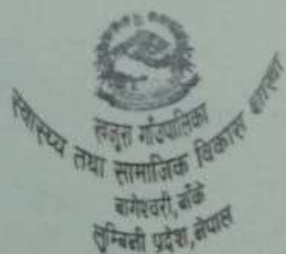 खजुरा गाँउपालिका
स्वास्थ्य तथा सामाजिक विकास शाखा
बागेश्वरी, बाँके
लुम्बिनी प्रदेश, नेपाल